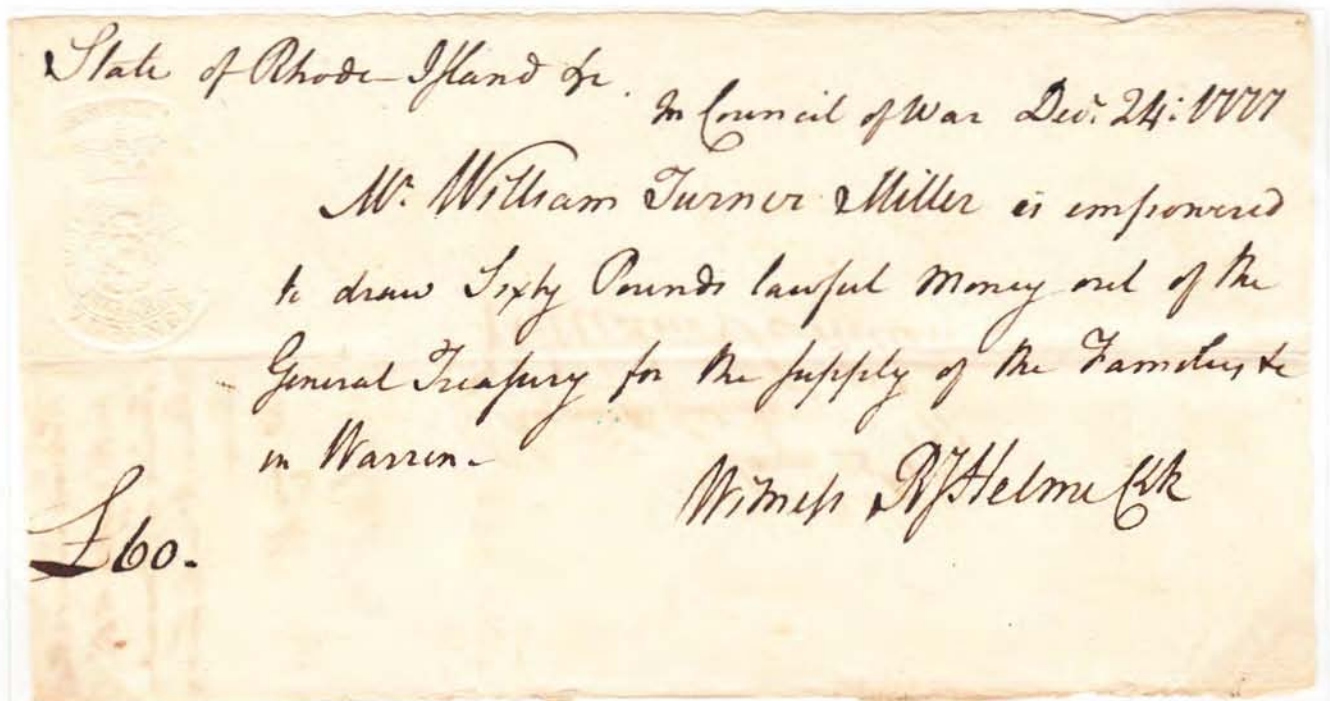 State of Rhode Island &c.
In Council of War Decr. 24: 1777
Mr. William Turner Miller is empowered
to draw Sixty Pounds lawful Money out of the
General Treasury for the supply of the Families &c
in Warren.
Witness R J Helme Clk
£60.